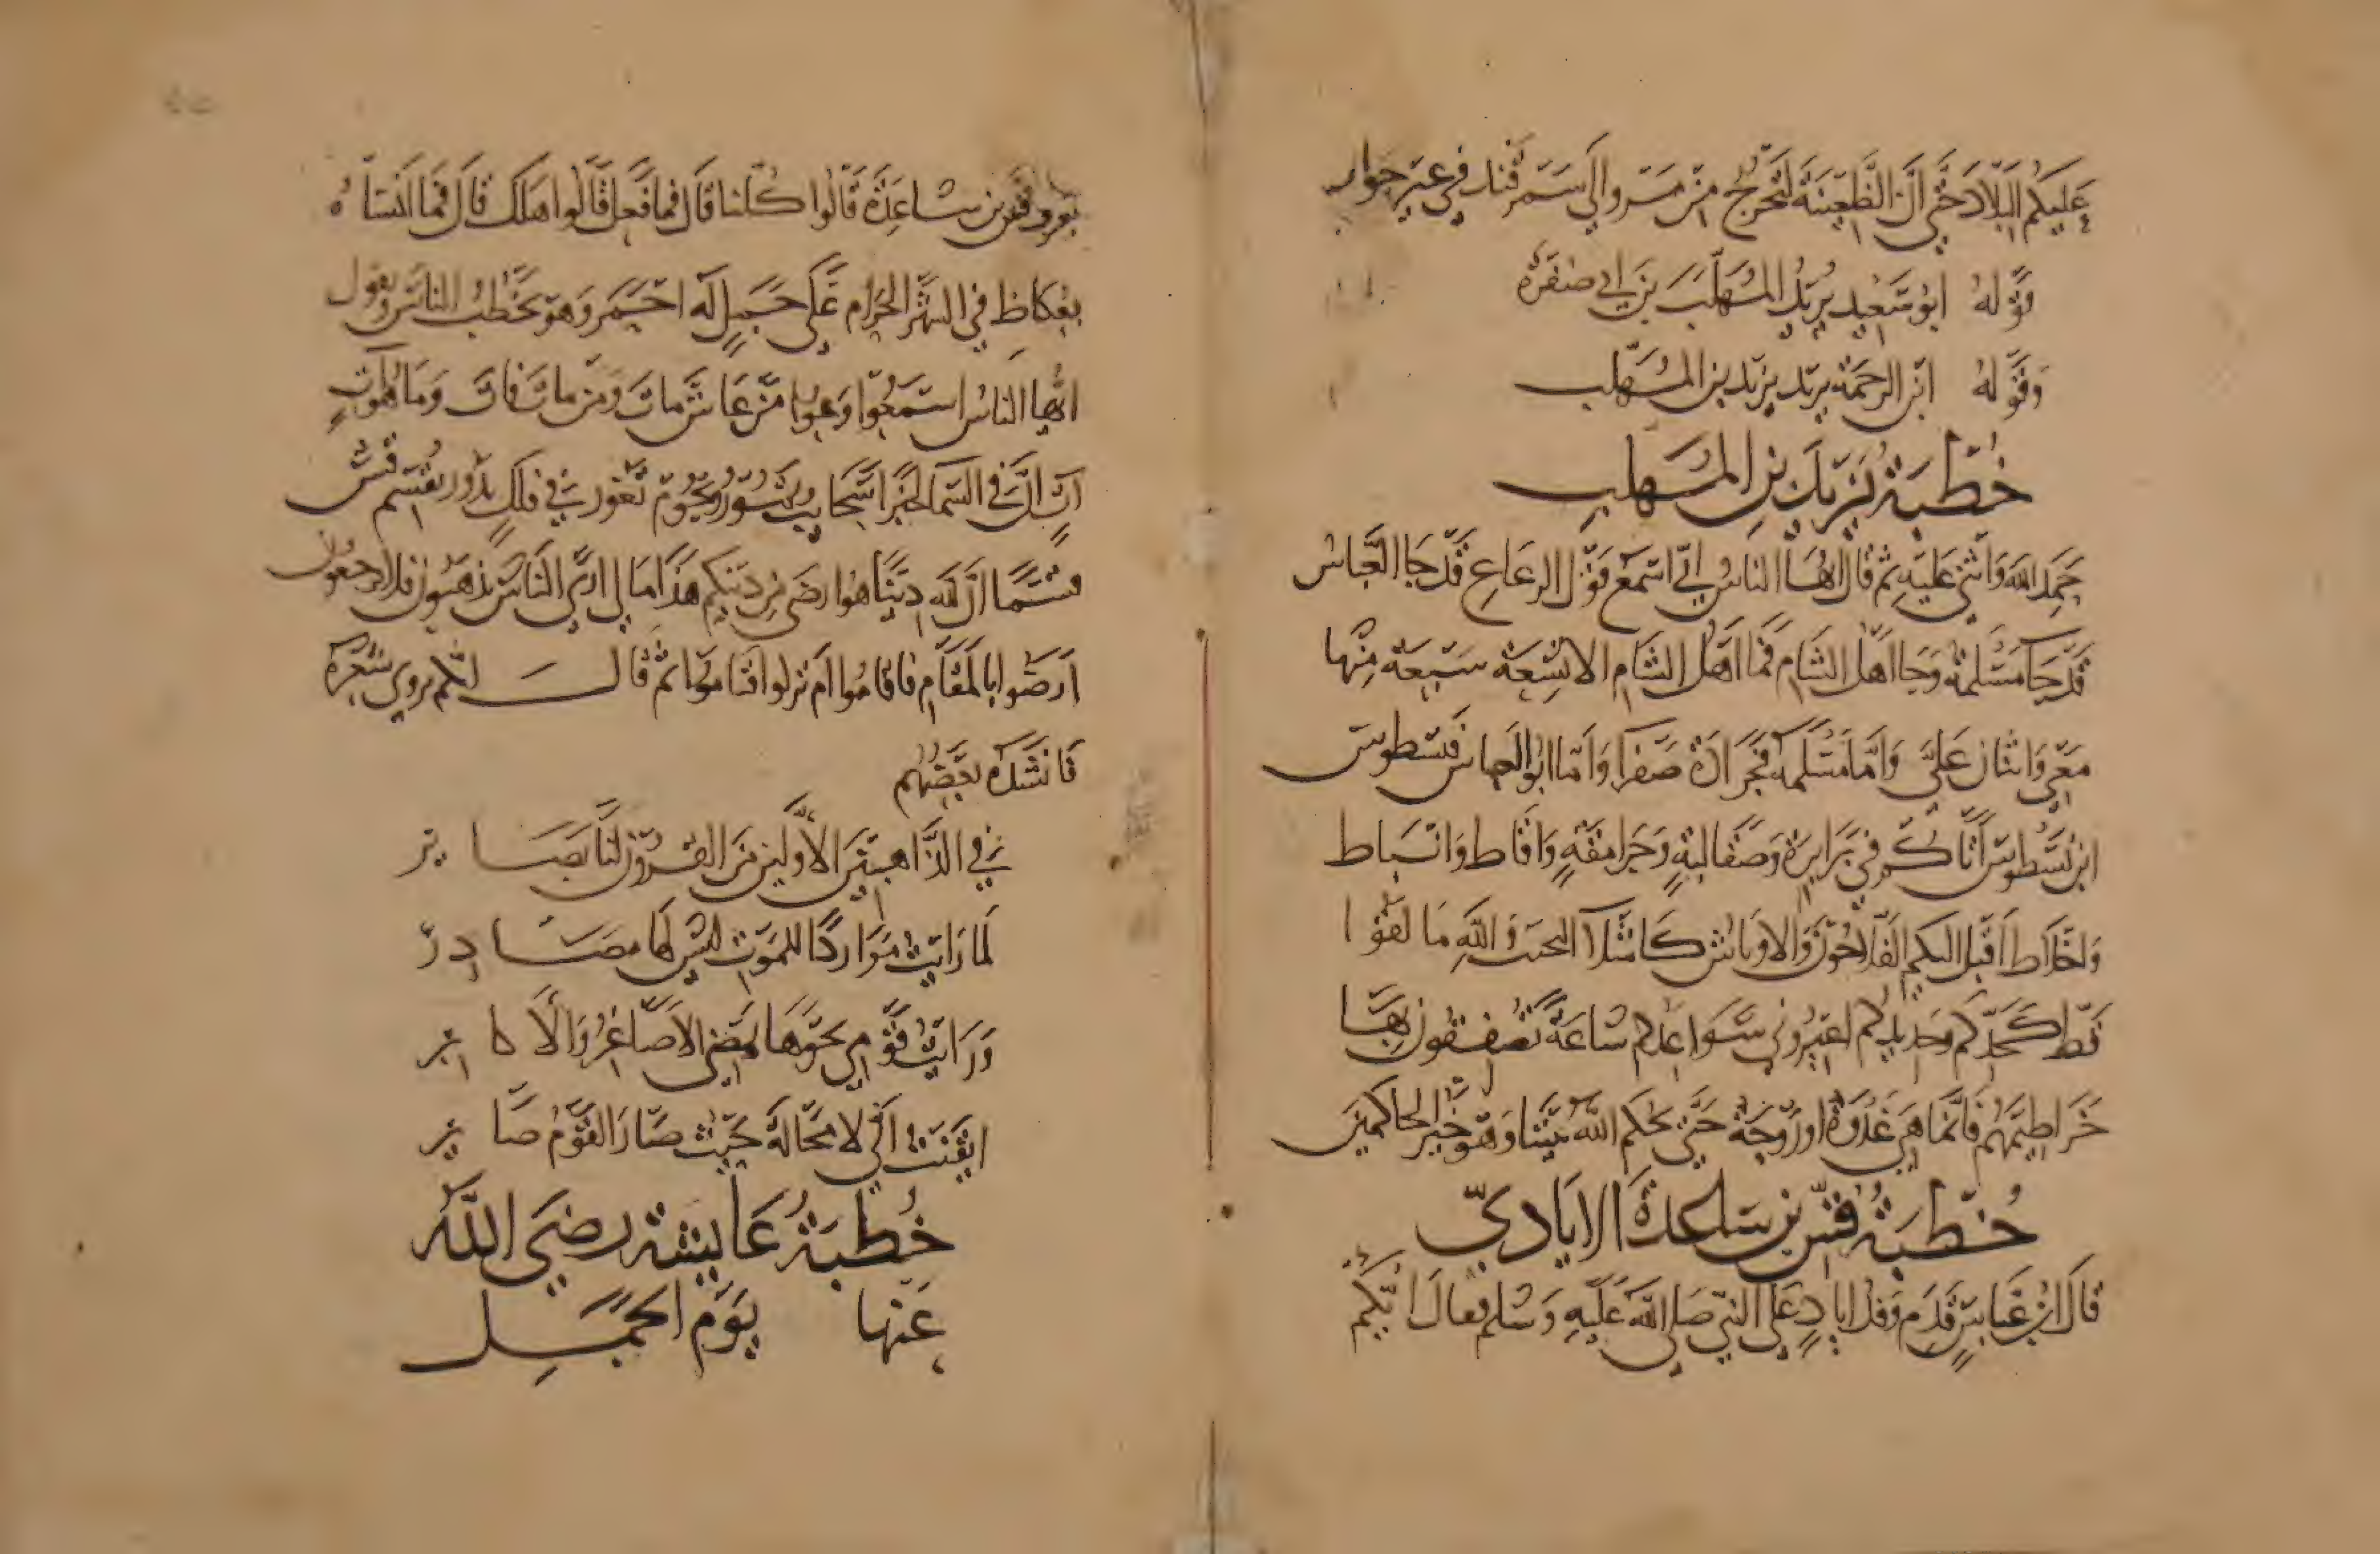 عليكم البلاد حتى ان الظعينة لتخرج من مرو الى سمرقند في غير جوار
قوله ابو سعيد يريد المهلب بن ابي صفرة
وقوله ابن الرحمة يريد يزيد بن المهلب
خطبة يزيد بن المهلب
حمد الله واثنى عليه ثم قال ايها الناس اني اسمع قول الرعاع قد جا العباس
قد جا مسلمة وجا اهل الشام فما اهل الشام الا تسعة سبعة منها
معي واثنان علي واما مسلمة فجرادة صفرا واما ابو العباس فسطوس
ابن نسطوس اتاكم في برابرة وصقالبة وجرامقة واقاط وانباط
واخلاط اقبل اليكم الفلاحون والاوباش كاشلا والله ما لقوا
قط كحدكم وحديدكم اعيروني سواعدكم ساعة تصفقون بها
خراطيمهم فانما هي غدوة او روحة حتى يحكم الله بيننا وهو خير الحاكمين
خطبة قس بن ساعدة الايادي
قال ابن عباس قدم وفد اياد على النبي صلى الله عليه وسلم فقال ايكم
يعرف قس بن ساعدة قالوا كلنا قال فما فعل قالوا هلك قال فما انساه
بعكاظ في الشهر الحرام على جمل له احمر وهو يخطب الناس ويقول
ايها الناس استمعوا وعوا من عاش مات ومن مات فات وما هو ات
ات ان في السما لخبرا سحايب ونجوم تغور في فلك يدور يقسم قس
قسما ان لله دينا هو ارضى من دينكم هذا ما لي ارى الناس يذهبون فلا يرجعون
ارضوا بالمقام فاقاموا ام تركوا فناموا ثم قال ايكم يروي شعره
فانشده بعضهم
في الذاهبين الاولين من القرون لنا بصاير
لما رايت مواردا للموت ليس لها مصادر
ورايت قومي نحوها يمضي الاصاغر والاكابر
ايقنت اني لا محالة حيث صار القوم صاير
خطبة عايشة رضي الله
عنها يوم الجمل